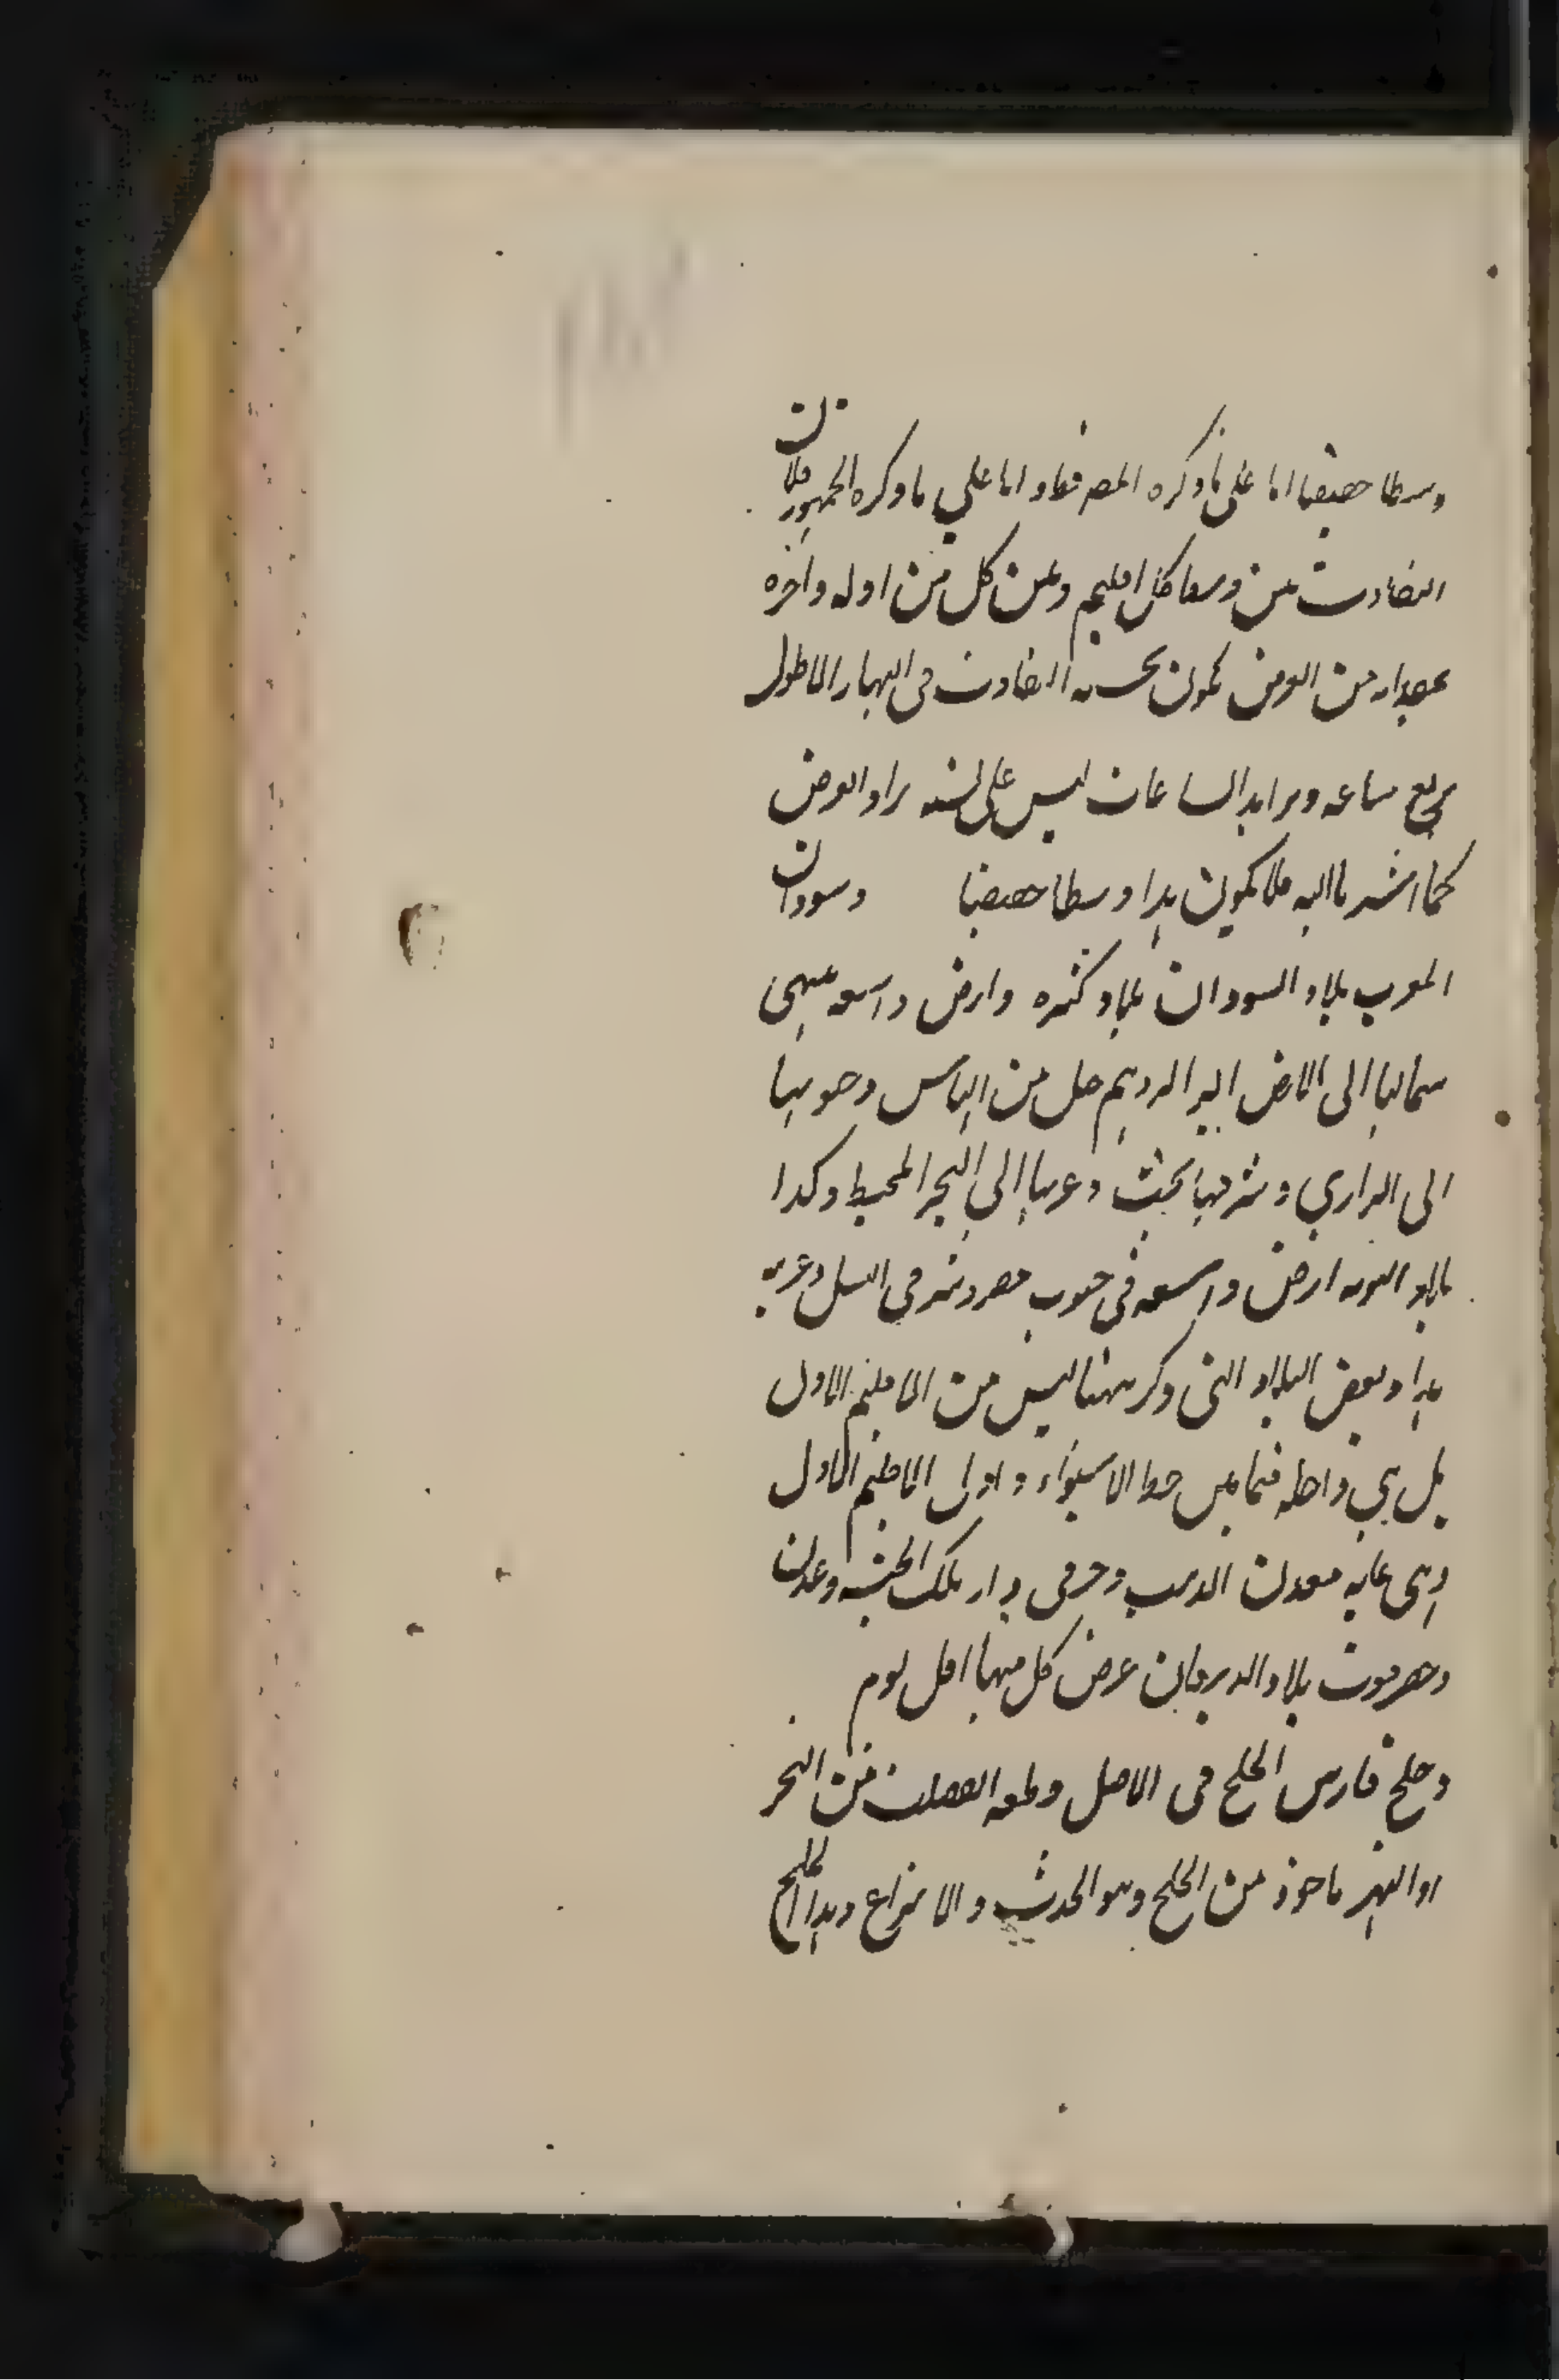 وسطا حقيقيا اما على ما ذكره المص فظ واما علي ما ذكره الجمهور فلان
التفاوت بين وسط كل اقليم وبين كل من اوله واخره
بمقدار من العرض يكون بحسبه التفاوت في النهار الاطول
بربع ساعه وتزايد الساعات ليس على نسبة تزايد العرض
كما اشرنا اليه فلا يكون هذا وسطا حقيقيا وسودان
المغرب بلاد السودان بلاد كثيره وارض واسعه ينتهى
شمالها الى الارض البر وجنوبها
الى البراري وشرقها الحبشة وغربها إلي البحر المحيط وكذا
بلاد النوبه ارض واسعه في جنوب مصر وشرقي النيل وغربيه
هذا وبعض البلاد التى ذكر ههنا ليس من الاقليم الاول
بل هي داخله فيما بين خط الاستواء واول الاقليم الاول
وهى غانه معدن الذهب وجرمى دار ملك الحبشه وعدن
وحضرموت بلاد البربر فان عرض كل منها اقل يوم
وخليج فارس الخليج في الاصل من البحر
او النهر ماخوذ من الخلج وهو الجذب والانتزاع وهذا الخليج